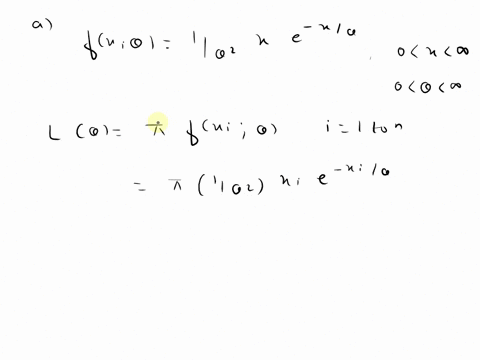 a)
f(x;θ) = 1/θ2 x e^-x/θ , 0<x<∞
0<θ<∞
L (θ) = π f(xi ; θ) i = 1 to n
= π (1/θ2) xi e^-xi/θ